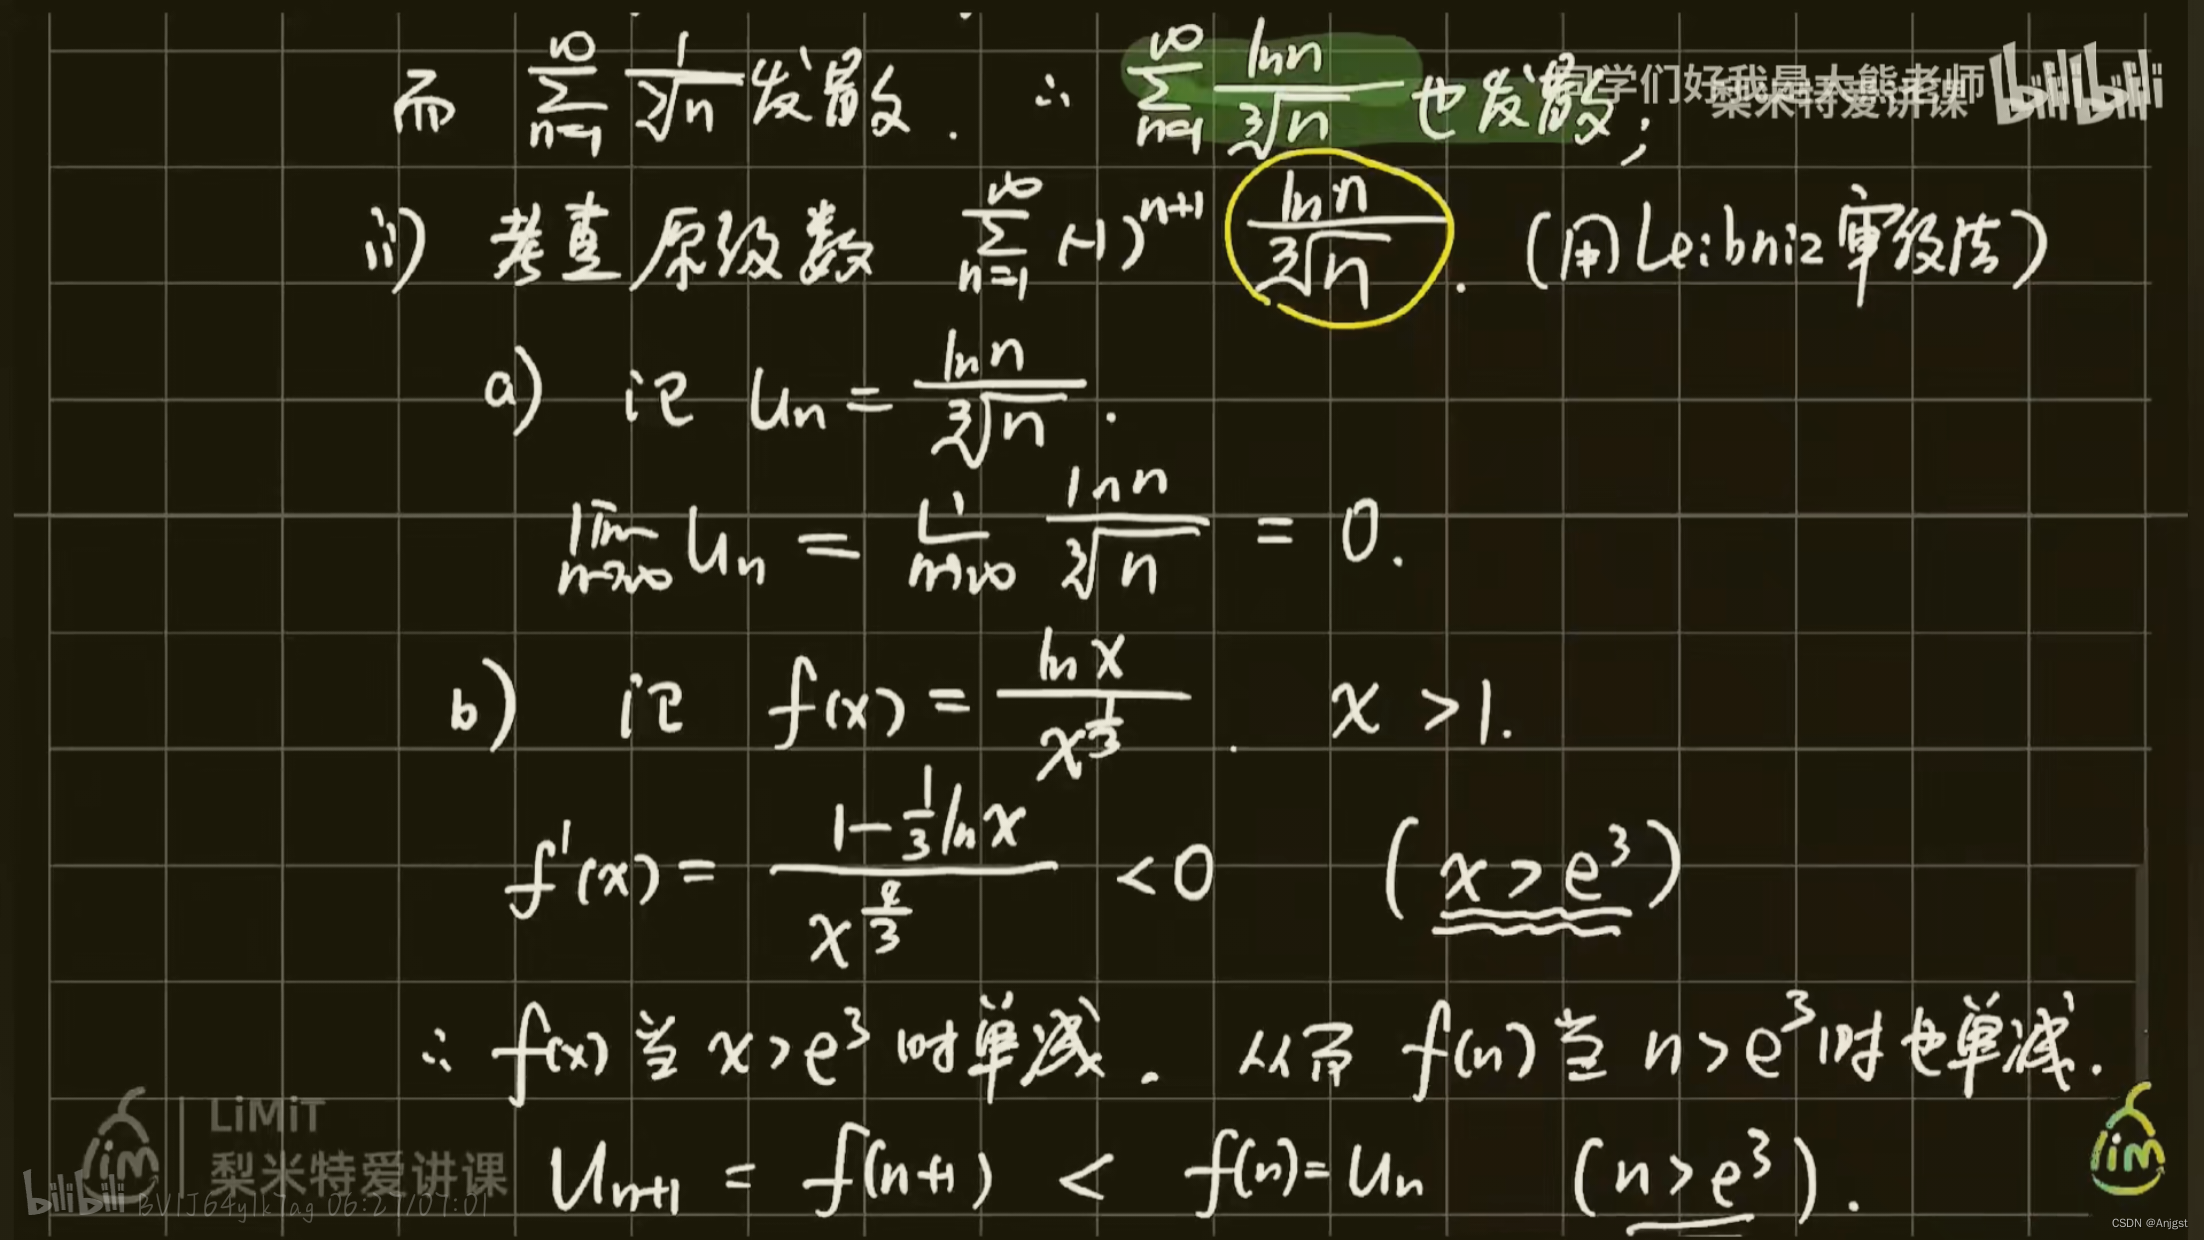 而 $\sum_{n=1}^{\infty} \frac{1}{\sqrt[3]{n}}$ 发散. ∴ $\sum_{n=1}^{\infty} \frac{\ln n}{\sqrt[3]{n}}$ 也发散;
同学们好我是大熊老师
梨米特爱讲课 bilibili
ii) 考查原级数 $\sum_{n=1}^{\infty} (-1)^{n+1} \frac{\ln n}{\sqrt[3]{n}}$. (用Leibniz审级法)
a) 记 $u_n = \frac{\ln n}{\sqrt[3]{n}}$.
$\lim_{n\to\infty} u_n = \lim_{n\to\infty} \frac{\ln n}{\sqrt[3]{n}} = 0$.
b) 记 $f(x) = \frac{\ln x}{x^{\frac{1}{3}}}$. $x > 1$.
$f'(x) = \frac{1 - \frac{1}{3}\ln x}{x^{\frac{4}{3}}} < 0$ ($x > e^3$)
∴ f(x) 当 $x > e^3$ 时单减. 从而 f(n) 当 $n > e^3$ 时也单减.
$u_{n+1} = f(n+1) < f(n) = u_n$ ($n > e^3$).
LiMiT
梨米特爱讲课
lim
bilibili BV1J64y1k7ag 06:27/07:01
lim
CSDN @Anjgst